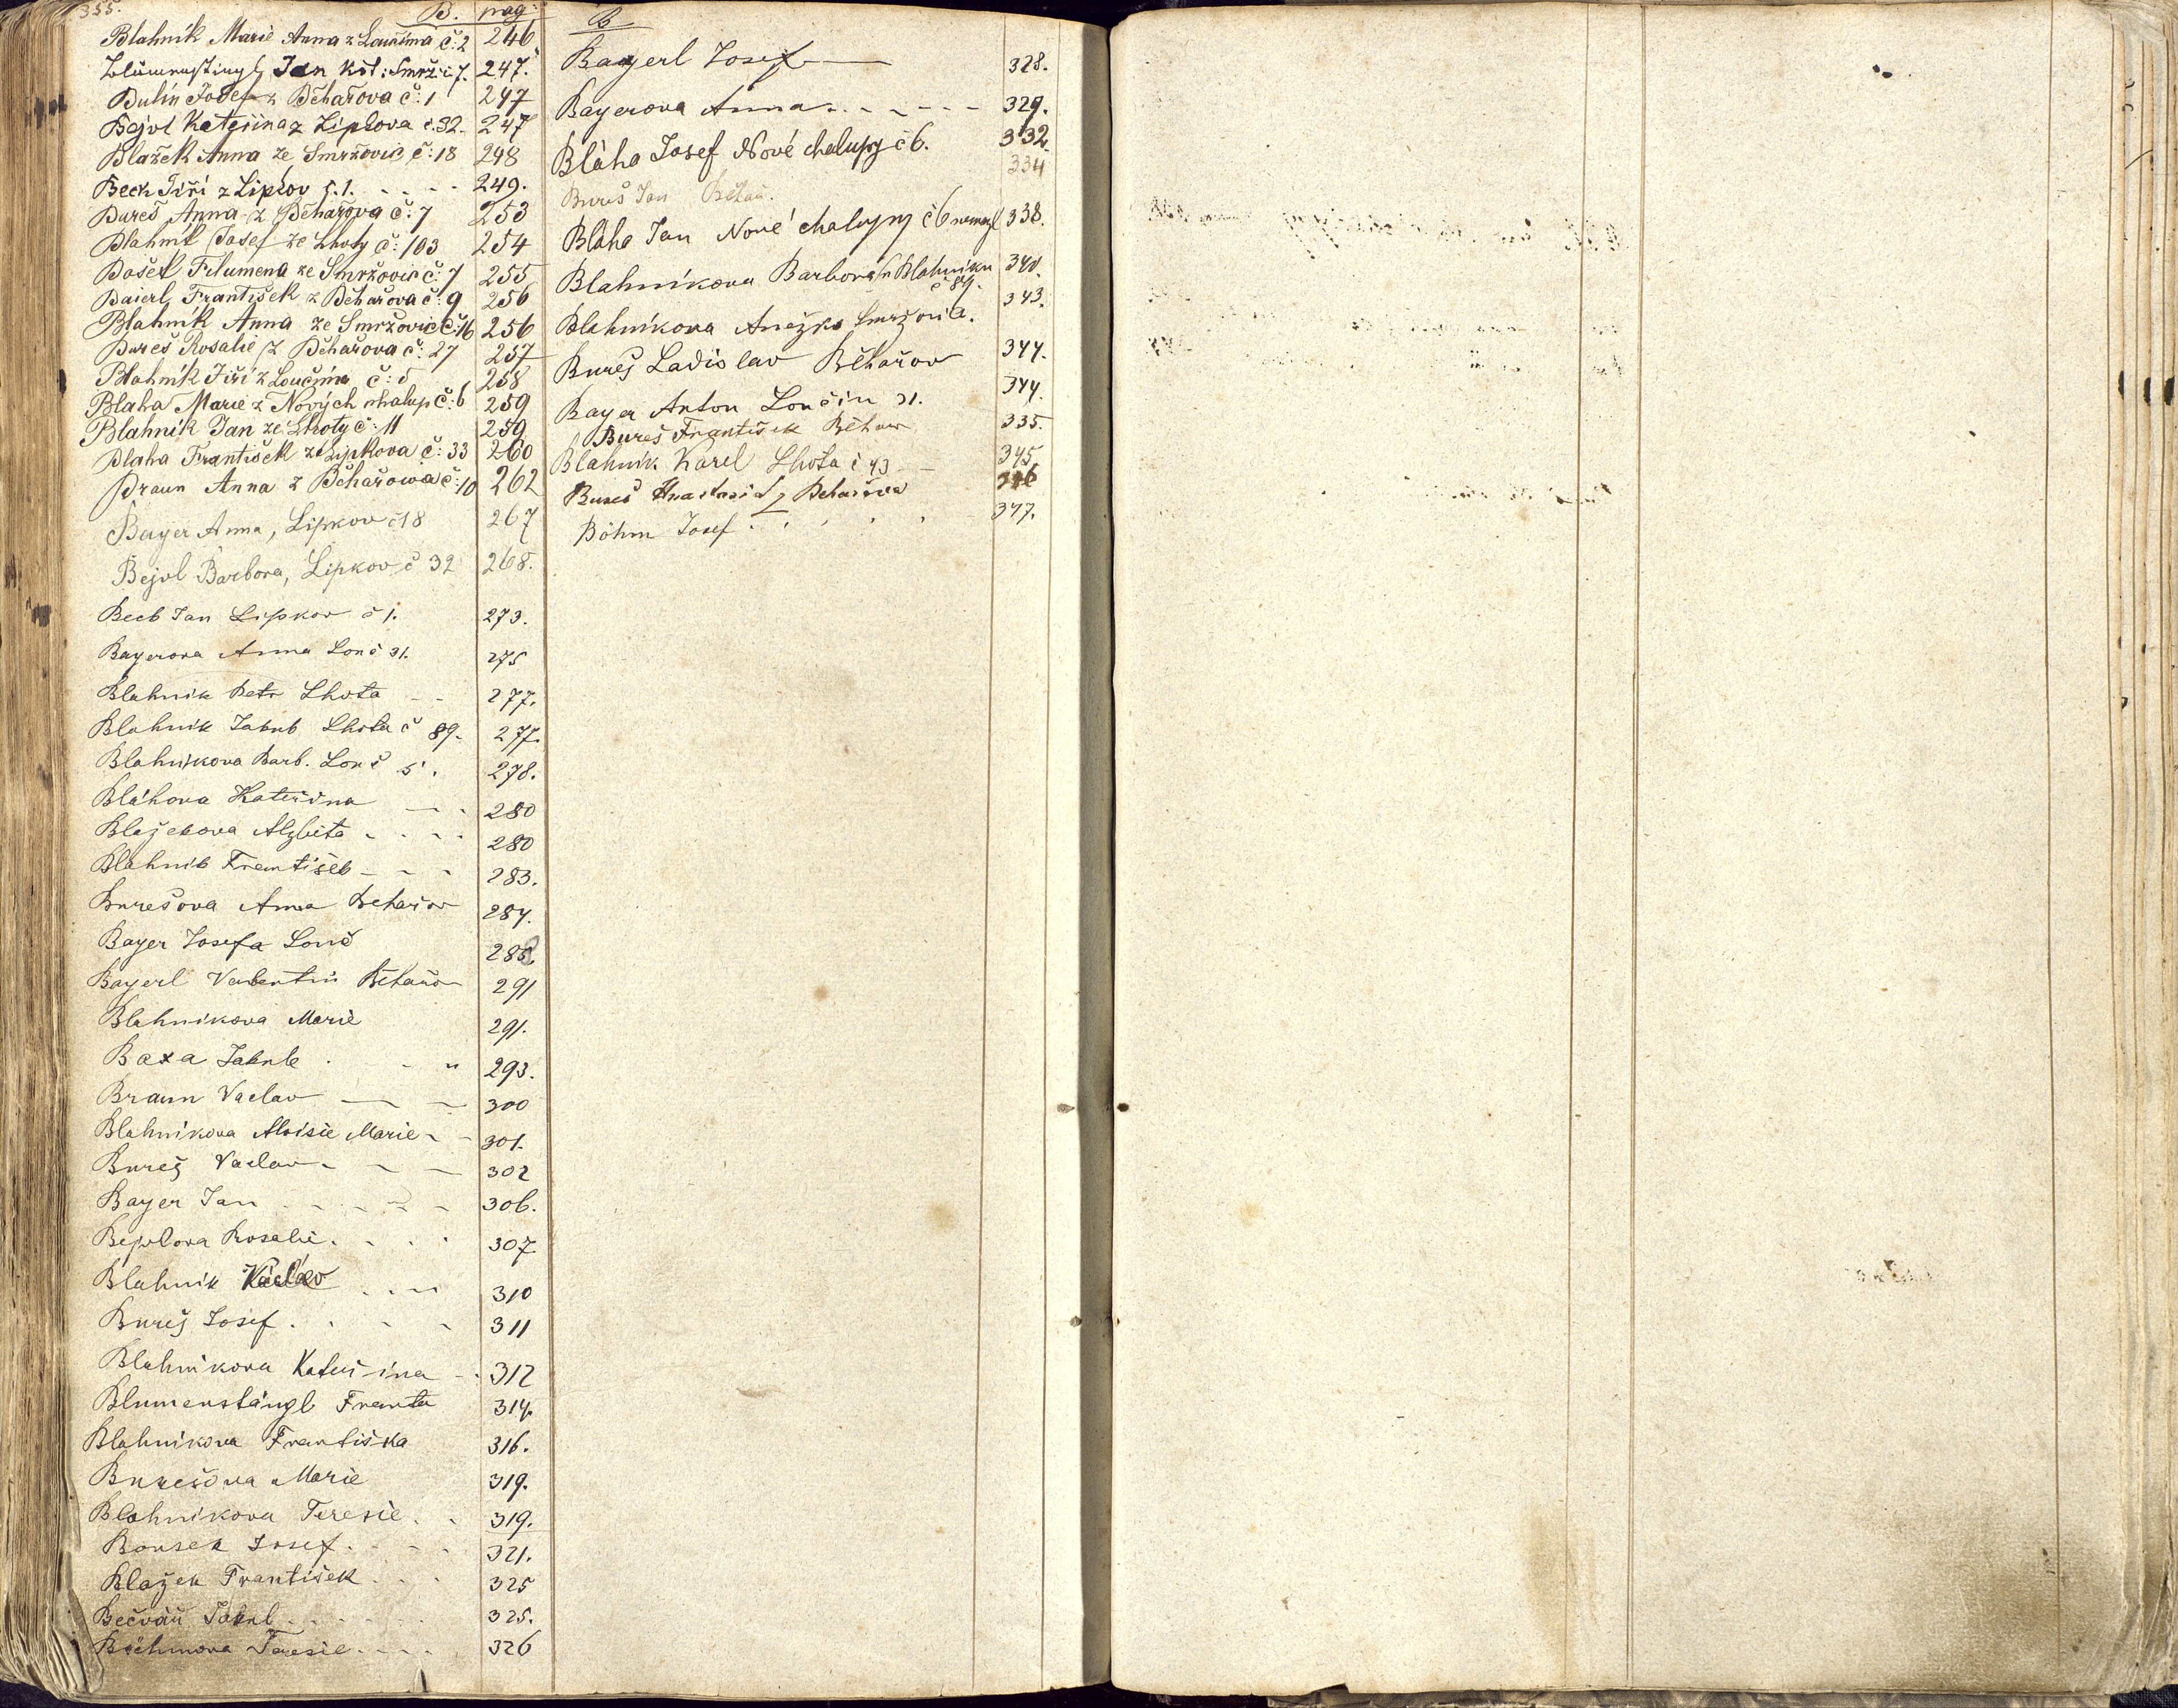 355. B. pag:
Blahník Marie Anna z Loučíma č:2 246
Jan Kšt: Smrž: č 7. 247.
Bulín Josef z Běhařova č:1 247
Bejvl Kateřina z Lipkova č.32. 247
Blažek Anna ze Smržovic č:18 248
Beck Jiří z Lipkov č.1. 249.
Bureš Anna z Běhařova č:7 253
Blahník Josef ze Lhoty č:103 254
Bošek Filumena ze Smržovic č:7 255
Baierl František z Běhařova č:9 256
Blahník Anna ze Smržovic č:16 256
Bureš Rosalie z Běhařova č:27 257
Blahník Jiří z Loučíma č:5 258
Blaha Marie z Nových chalup č:6 259
Blahník Jan ze Lhoty č:11 259
Blaha František z Lipkova č:33 260
Braun Anna z Běhařowa č:10 262
Bayer Anna, Lipkov č18 267
Bejvl Barbora, Lipkov č 32 268.
Beck Jan Lipkov č 1. 273.
Bayerova Anna Louč 31. 275
Blahnik Petr Lhota 277.
Blahnik Jakub Lhota č 89. 277.
Blahnikova Barb. Louč 5. 278.
Bláhova Kateřina 280
Blažekova Alžběta 280
Blahnik František 283.
Burešova Anna Běhařov 284.
Bayer Josefa Louč 288.
Bayerl Valentin Běhařov 291
Blahnikova Marie 291.
Baxa Jakub 293.
Braun Vaclav 300
Blahnikova Aloisie Marie 301.
Bureš Vaclav 302
Bayer Jan 306.
Bejvlova Rosalie 307
Blahnik Václav 310
Bureš Josef 311
Blahnikova Kateřina 312
Blumenstängl Franta 314.
Blahnikova Františka 316.
Burešova Marie 319.
Blahnikova Teresie 319.
Bousek Josef 321.
Blažek František 325
Bečvář Jakub 325.
Böhmova Teresie 326
B
Bayerl Josef 328.
Bayerova Anna 329.
Bláha Josef Nové chalupy č 6. 332.
Bureš Jan Běhař. 334
Bláha Jan Nové chalupy č 6 338.
Blahníkova Barbora Blahníku č 89. 340.
Blahníkova Anežka Smržovic. 343.
Bureš Ladislav Běhařov 344.
Bayer Anton Loučin 31. 344.
Bureš František Běhař 335.
Blahnik Karel Lhota č 43 345
Bureš Anastasie z Běhařova 346
Böhm Josef 347.